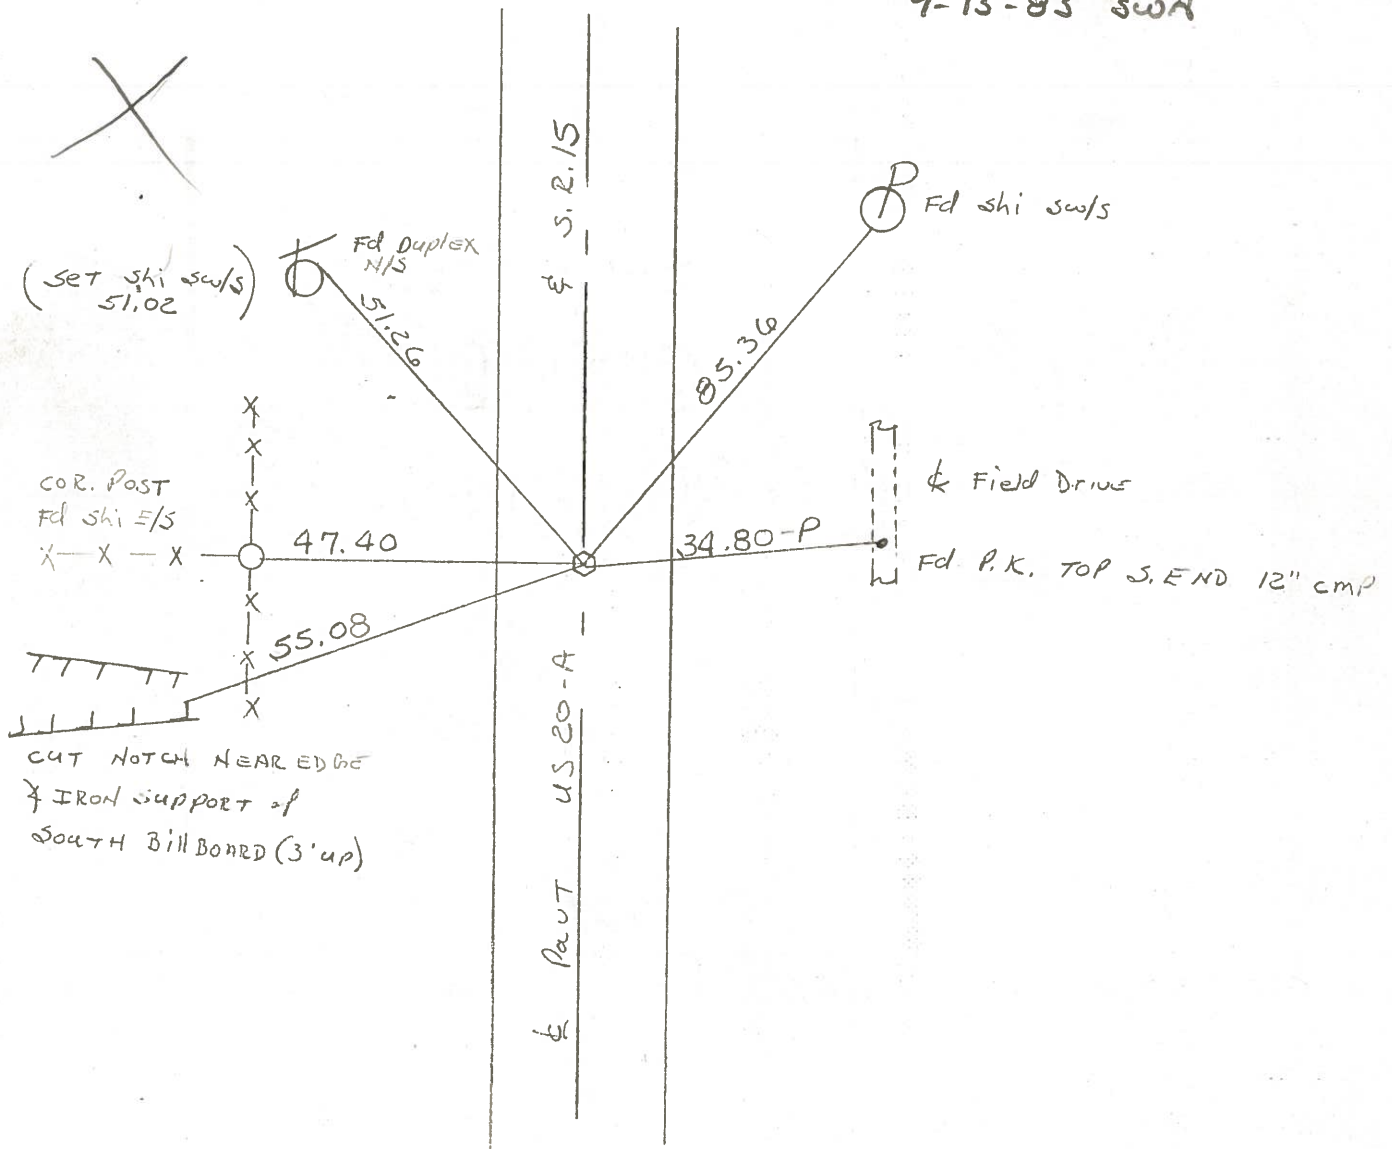 9-13-85 SWN
℄ S.R.15
Fd shi sw/s
Fd Duplex
N/S
(Set shi sw/s)
51.02
51.26
85.36
X
X
COR. POST
Fd shi E/S
X
X — X — X
47.40
34.80-P
℄ Field Drive
Fd P.K. TOP S. END 12" cmp
X
55.08
X
X
CUT NOTCH NEAR EDGE
IRON support of
South BillBOARD (3'up)
℄ Pavt US 20-A